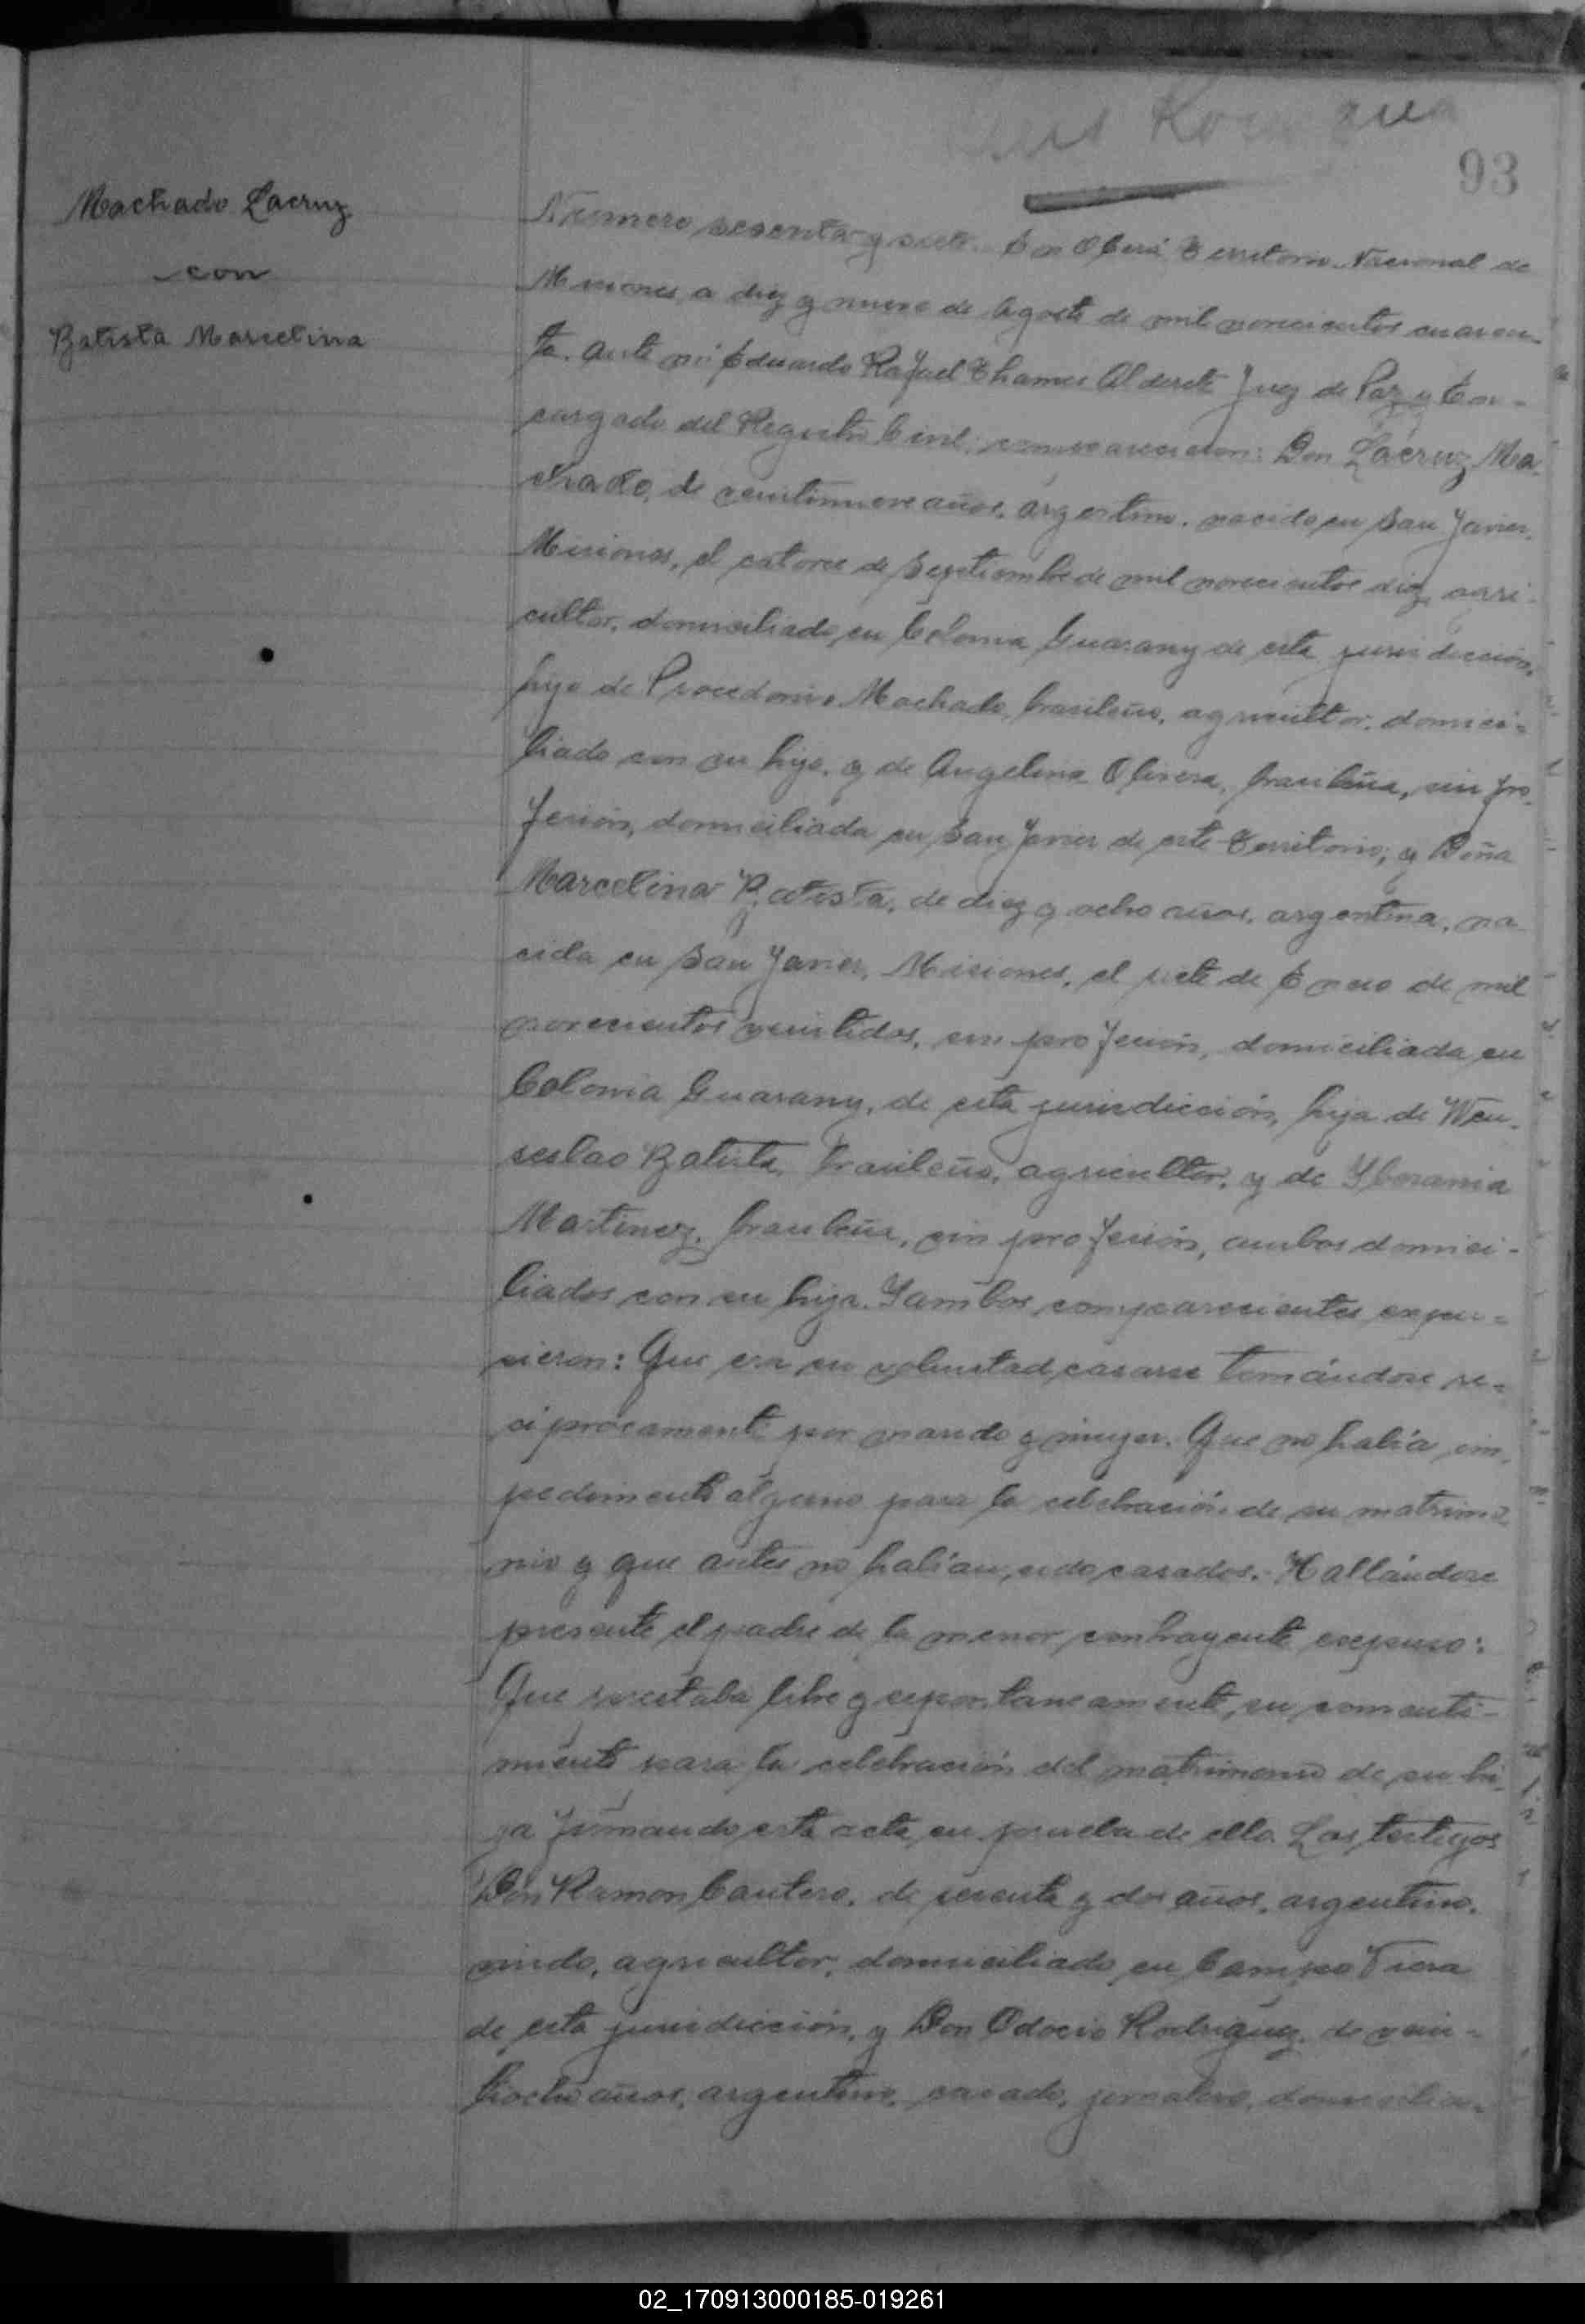 93
Machado Lacruz
con
Batista Marcelina
Número sesenta y siete. En Oberá Territorio Nacional de
Misiones a diez y nueve de Agosto de mil novecientos cuaren-
ta. Ante mí Eduardo Rafael Thames Alderete Juez de Paz y En-
cargado del Registro Civil; comparecieron: Don Lacruz Ma-
chado, de veintinueve años, argentino, nacido en San Javier,
Misiones, el catorce de Septiembre de mil novecientos diez, agri-
cultor, domiciliado en Colonia Guarany de esta jurisdicción,
hijo de Procedonio Machado, brasileño, agricultor, domici-
liado con su hijo, y de Angelina Olivera, brasileña, sin pro-
fesión, domiciliada en San Javier de este Territorio; y Doña
Marcelina Batista, de diez y ocho años, argentina, na-
cida en San Javier, Misiones, el siete de Enero de mil
novecientos veintidos, sin profesión, domiciliada en
Colonia Guarany, de esta jurisdicción, hija de Wen-
seslao Batista, brasileño, agricultor, y de
Martinez, brasileña, sin profesión, ambos domici-
liados con su hija. Y ambos comparecientes expu-
sieron: Que era su voluntad casarse tomándose re-
ciprocamente por marido y mujer. Que no había im-
pedimento alguno para la celebración de su matrimo-
nio y que antes no habían sido casados. Hallándose
presente el padre de la menor contrayente expuso:
Que prestaba libre y espontaneamente, su consenti-
miento para la celebración del matrimonio de su hi-
ja firmando esta acta en prueba de ello. Los testigos
Don Ramon Cantero, de sesenta y dos años, argentino,
viudo, agricultor, domiciliado en Campo Viera
de esta jurisdicción, y Don Odocio Rodriguez, de vein-
tiocho años, argentino, casado, jornalero, domicilia-
02_170913000185-019261